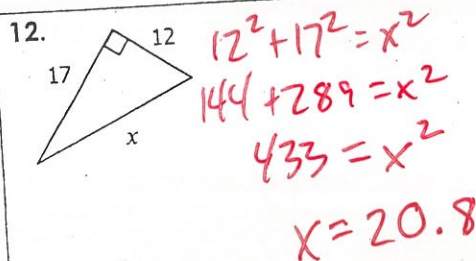 12.
12
17
x
12²+17²=x²
144+289=x²
433=x²
x=20.8